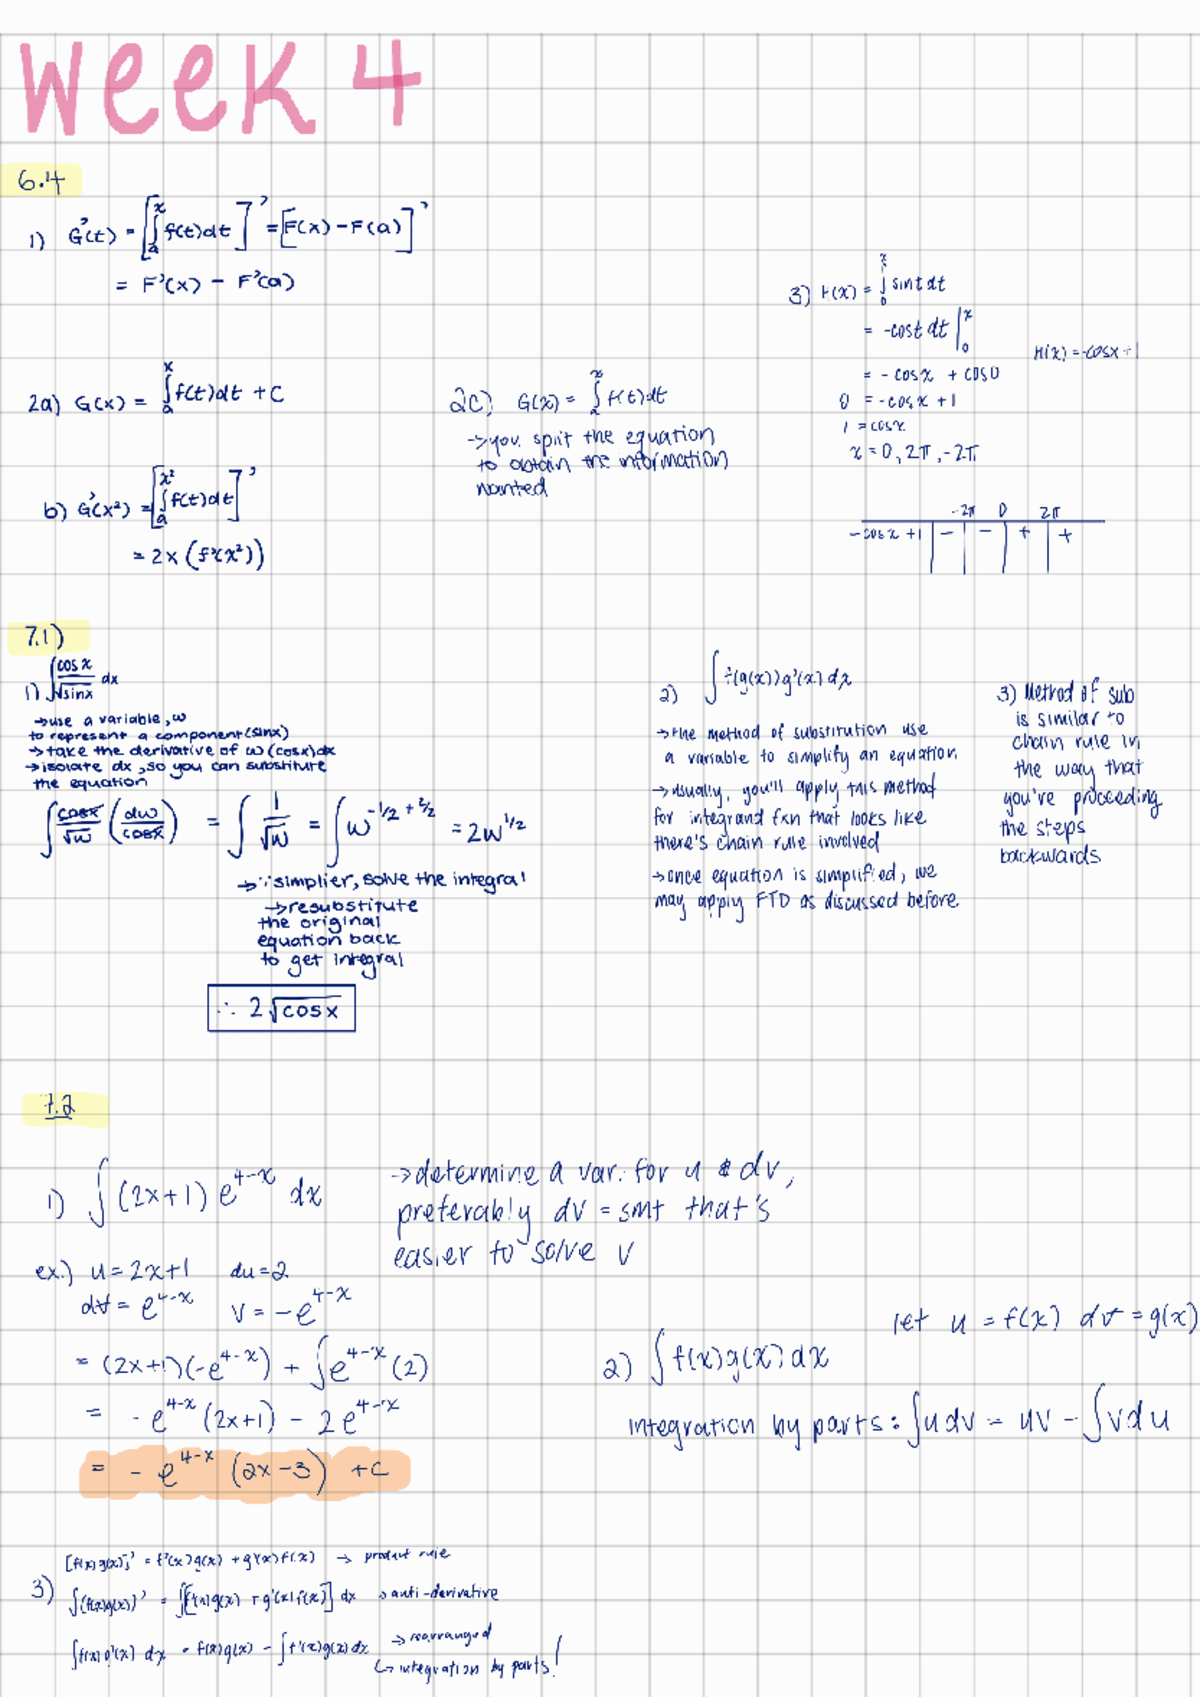 Week 4
6.4
1) G'(t) = [∫ₐˣ f(t)dt]' = [F(x) - F(a)]'
= F'(x) - F'(a)
2a) G(x) = ∫ₐˣ f(t)dt + C
b) G'(x²) = [∫ₐˣ² f(t)dt]'
= 2x (f'(x²))
2c) G(x) = ∫ₐˣ f(t)dt
→ you split the equation
to obtain the information
wanted
3) H(x) = ∫₀ˣ sint dt
= -cost dt |₀ˣ
H(x) = -cosx + 1
= - cosx + cos0
0 = -cosx + 1
1 = cosx
x = 0, 2π, -2π
-2π 0 2π
-cosx + 1 - - + +
7.1)
1) ∫ cosx/√sinx dx
→ use a variable, w
to represent a component (sinx)
→ take the derivative of w (cosx)dx
→ isolate dx, so you can substiture
the equation
∫ cosx/√w (dw/cosx) = ∫ 1/√w = ∫ w^(-1/2 + 2/2) = 2w^(1/2)
→ ∵ simplier, solve the integral
→ resubstitute
the original
equation back
to get integral
∴ 2√cosx
2) ∫ f(g(x))g'(x)dx
→ the method of substitution use
a variable to simplify an equation
→ usually, you'll apply this method
for integrand fxn that looks like
there's chain rule involved
→ once equation is simplified, we
may apply FTD as discussed before
3) Method of sub
is similar to
chain rule in
the way that
you're proceeding
the steps
backwards
7.2
1) ∫ (2x+1) e^(4-x) dx
→ determine a var. for u & dv,
preferably dv = smt that's
easier to solve v
ex.) u = 2x+1 du = 2
dv = e^(4-x) v = -e^(4-x)
= (2x+1)(-e^(4-x)) + ∫ e^(4-x) (2)
= -e^(4-x) (2x+1) - 2e^(4-x)
= -e^(4-x) (2x-3) + C
let u = f(x) dv = g(x)
2) ∫ f(x)g(x)dx
integration by parts: ∫udv = uv - ∫vdu
3) [f(x)g(x)]' = f'(x)g(x) + g'(x)f(x) → product rule
∫(f(x)g(x))' = ∫[f'(x)g(x) + g'(x)f(x)] dx → anti-derivative
∫f(x)g'(x) dx = f(x)g(x) - ∫f'(x)g(x)dx → rearranged
↳ integration by parts!